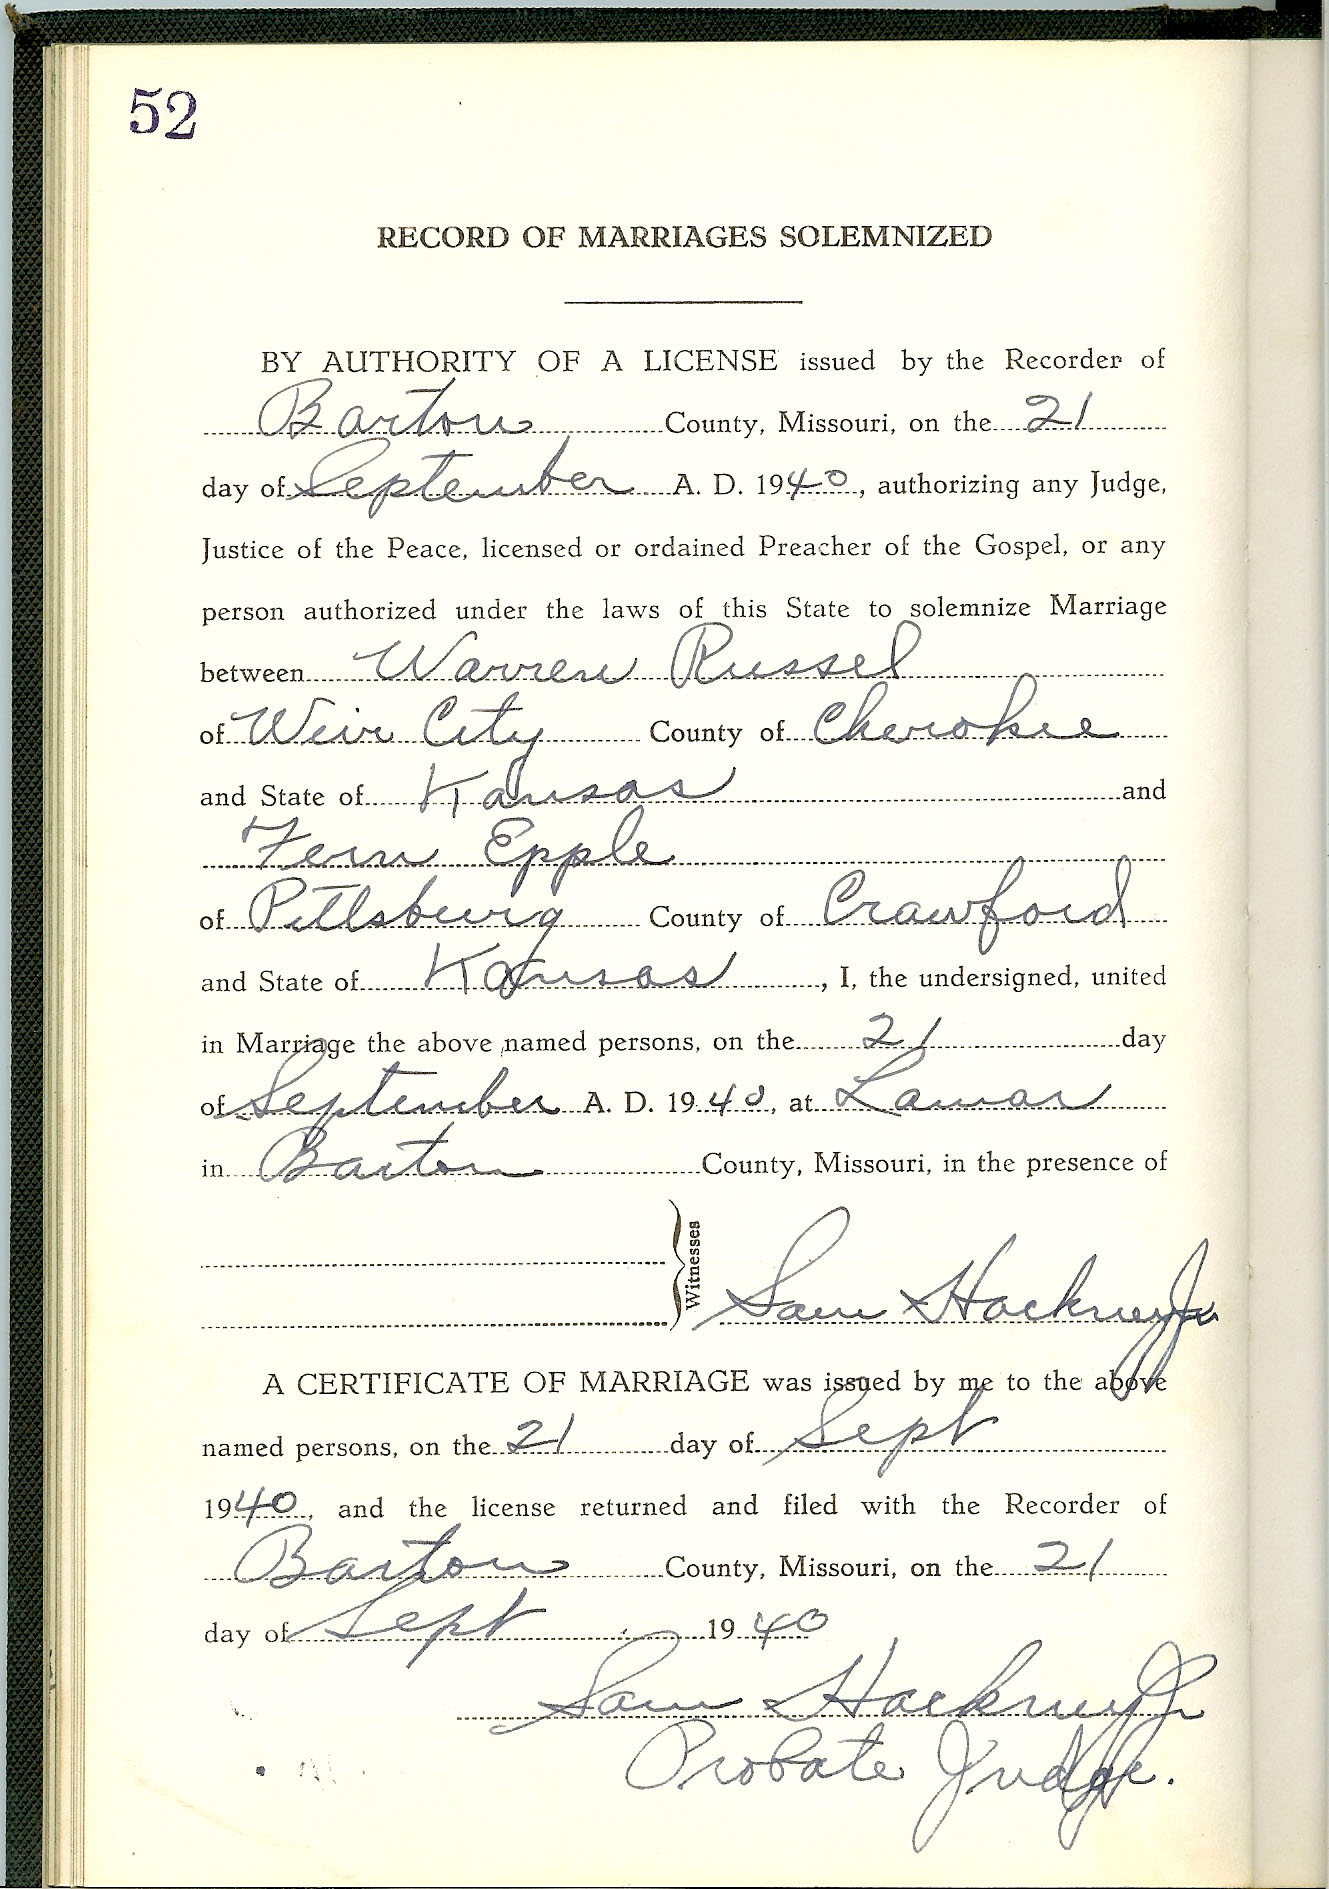 52
RECORD OF MARRIAGES SOLEMNIZED
BY AUTHORITY OF A LICENSE issued by the Recorder of
Barton County, Missouri, on the 21
day of September A. D. 1940, authorizing any Judge,
Justice of the Peace, licensed or ordained Preacher of the Gospel, or any
person authorized under the laws of this State to solemnize Marriage
between Warren Russel
of Weir City County of Cherokee
and State of Kansas and
Fern Epple
of Pittsburg County of Crawford
and State of Kansas, I, the undersigned, united
in Marriage the above named persons, on the 21 day
of September A. D. 1940, at Lamar
in Barton County, Missouri, in the presence of
Witnesses
Sam Hackney Jr
A CERTIFICATE OF MARRIAGE was issued by me to the above
named persons, on the 21 day of Sept
1940, and the license returned and filed with the Recorder of
Barton County, Missouri, on the 21
day of Sept 1940
Sam Hackney Jr
Probate Judge.